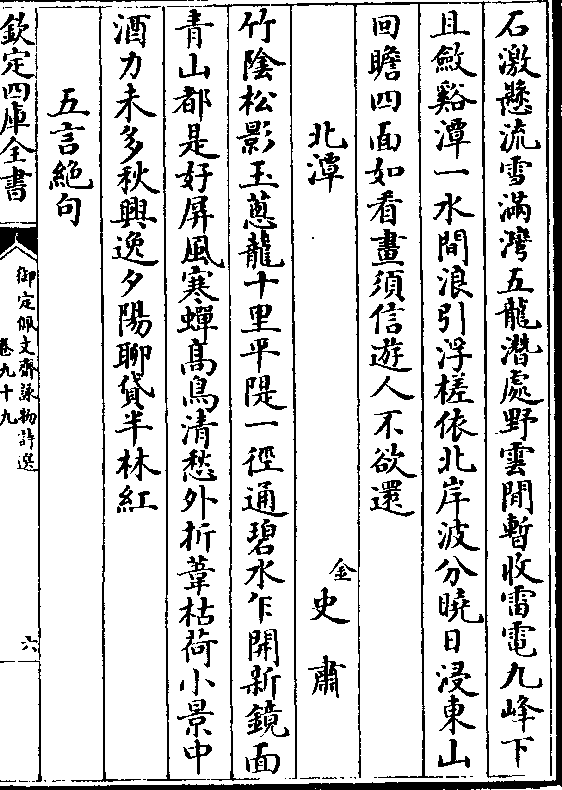 石激懸流雪滿灣五龍潛處野雲閒暫收雷電九峰下
且斂谿潭一水間浪引浮槎依北岸波分曉日浸東山
回瞻四面如看畫須信遊人不欲還
北潭 金 史肅
竹陰松影玉蔥龍十里平隄一徑通碧水乍開新鏡面
青山都是好屏風寒蟬高鳥清愁外折葦枯荷小景中
酒力未多秋興逸夕陽聊貸半林紅
五言絕句
欽定四庫全書
御定佩文齋詠物詩選
卷九十九
六